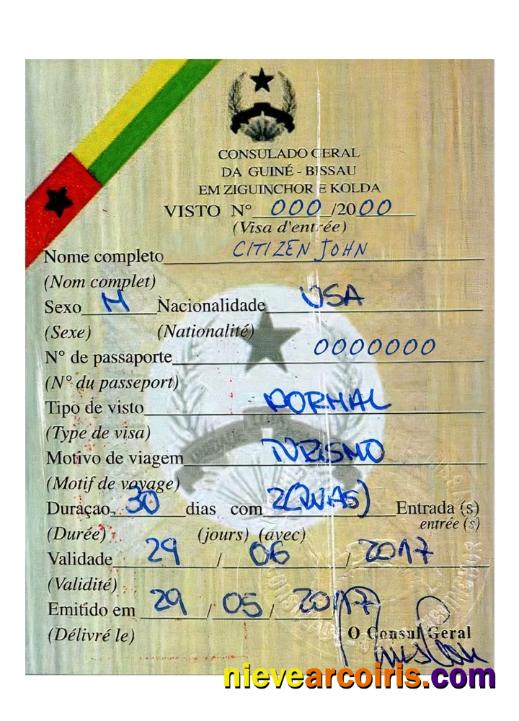 CONSULADO GERAL
DA GUINÉ - BISSAU
EM ZIGUINCHOR E KOLDA
VISTO Nº 000 /2000
(Visa d'entrée)
Nome completo CITIZEN JOHN
(Nom complet)
Sexo M Nacionalidade USA
(Sexe) (Nationalité)
Nº de passaporte 0000000
(Nº du passeport)
Tipo de visto NORMAL
(Type de visa)
Motivo de viagem TURISMO
(Motif de voyage)
Duraçao 30 dias com 2(DUAS) Entrada (s)
(Durée) (jours) (avec) entrée (s)
Validade 29 / 06 / 2017
(Validité)
Emitido em 29 / 05 / 2017
(Délivré le) O Consul Geral
nievearcoiris.com